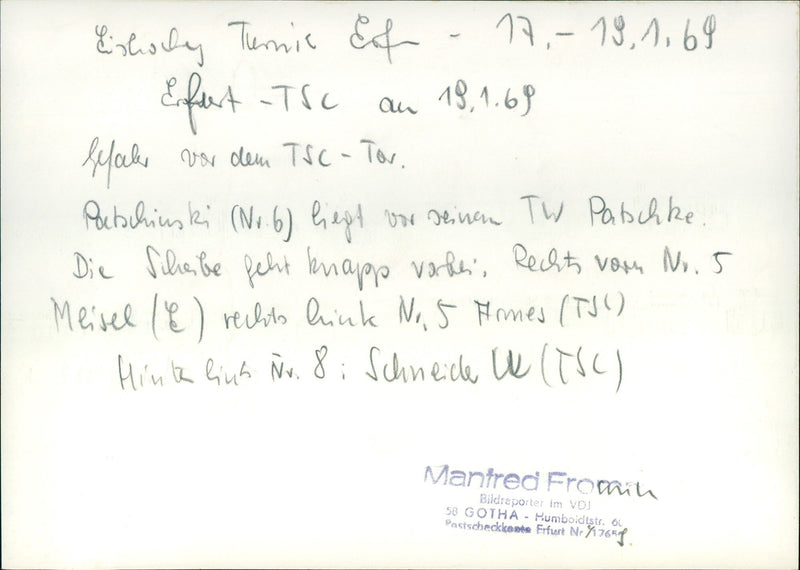 Eishockey Turnier Erf - 17. - 19.1.69
Erfurt - TSC am 19.1.69
Gefahr vor dem TSC - Tor.
Patschinski (Nr. 6) liegt vor seinem TW Patschke.
Die Scheibe geht knapp vorbei. Rechts vorn Nr. 5
Meisel (E) rechts hint Nr. 5 (TSC)
Hinten links Nr. 8 : Schneider (TSC)
Manfred Fromm
Bildreporter im VDJ
58 GOTHA - Humboldtstr.
Postscheckkonto Erfurt Nr